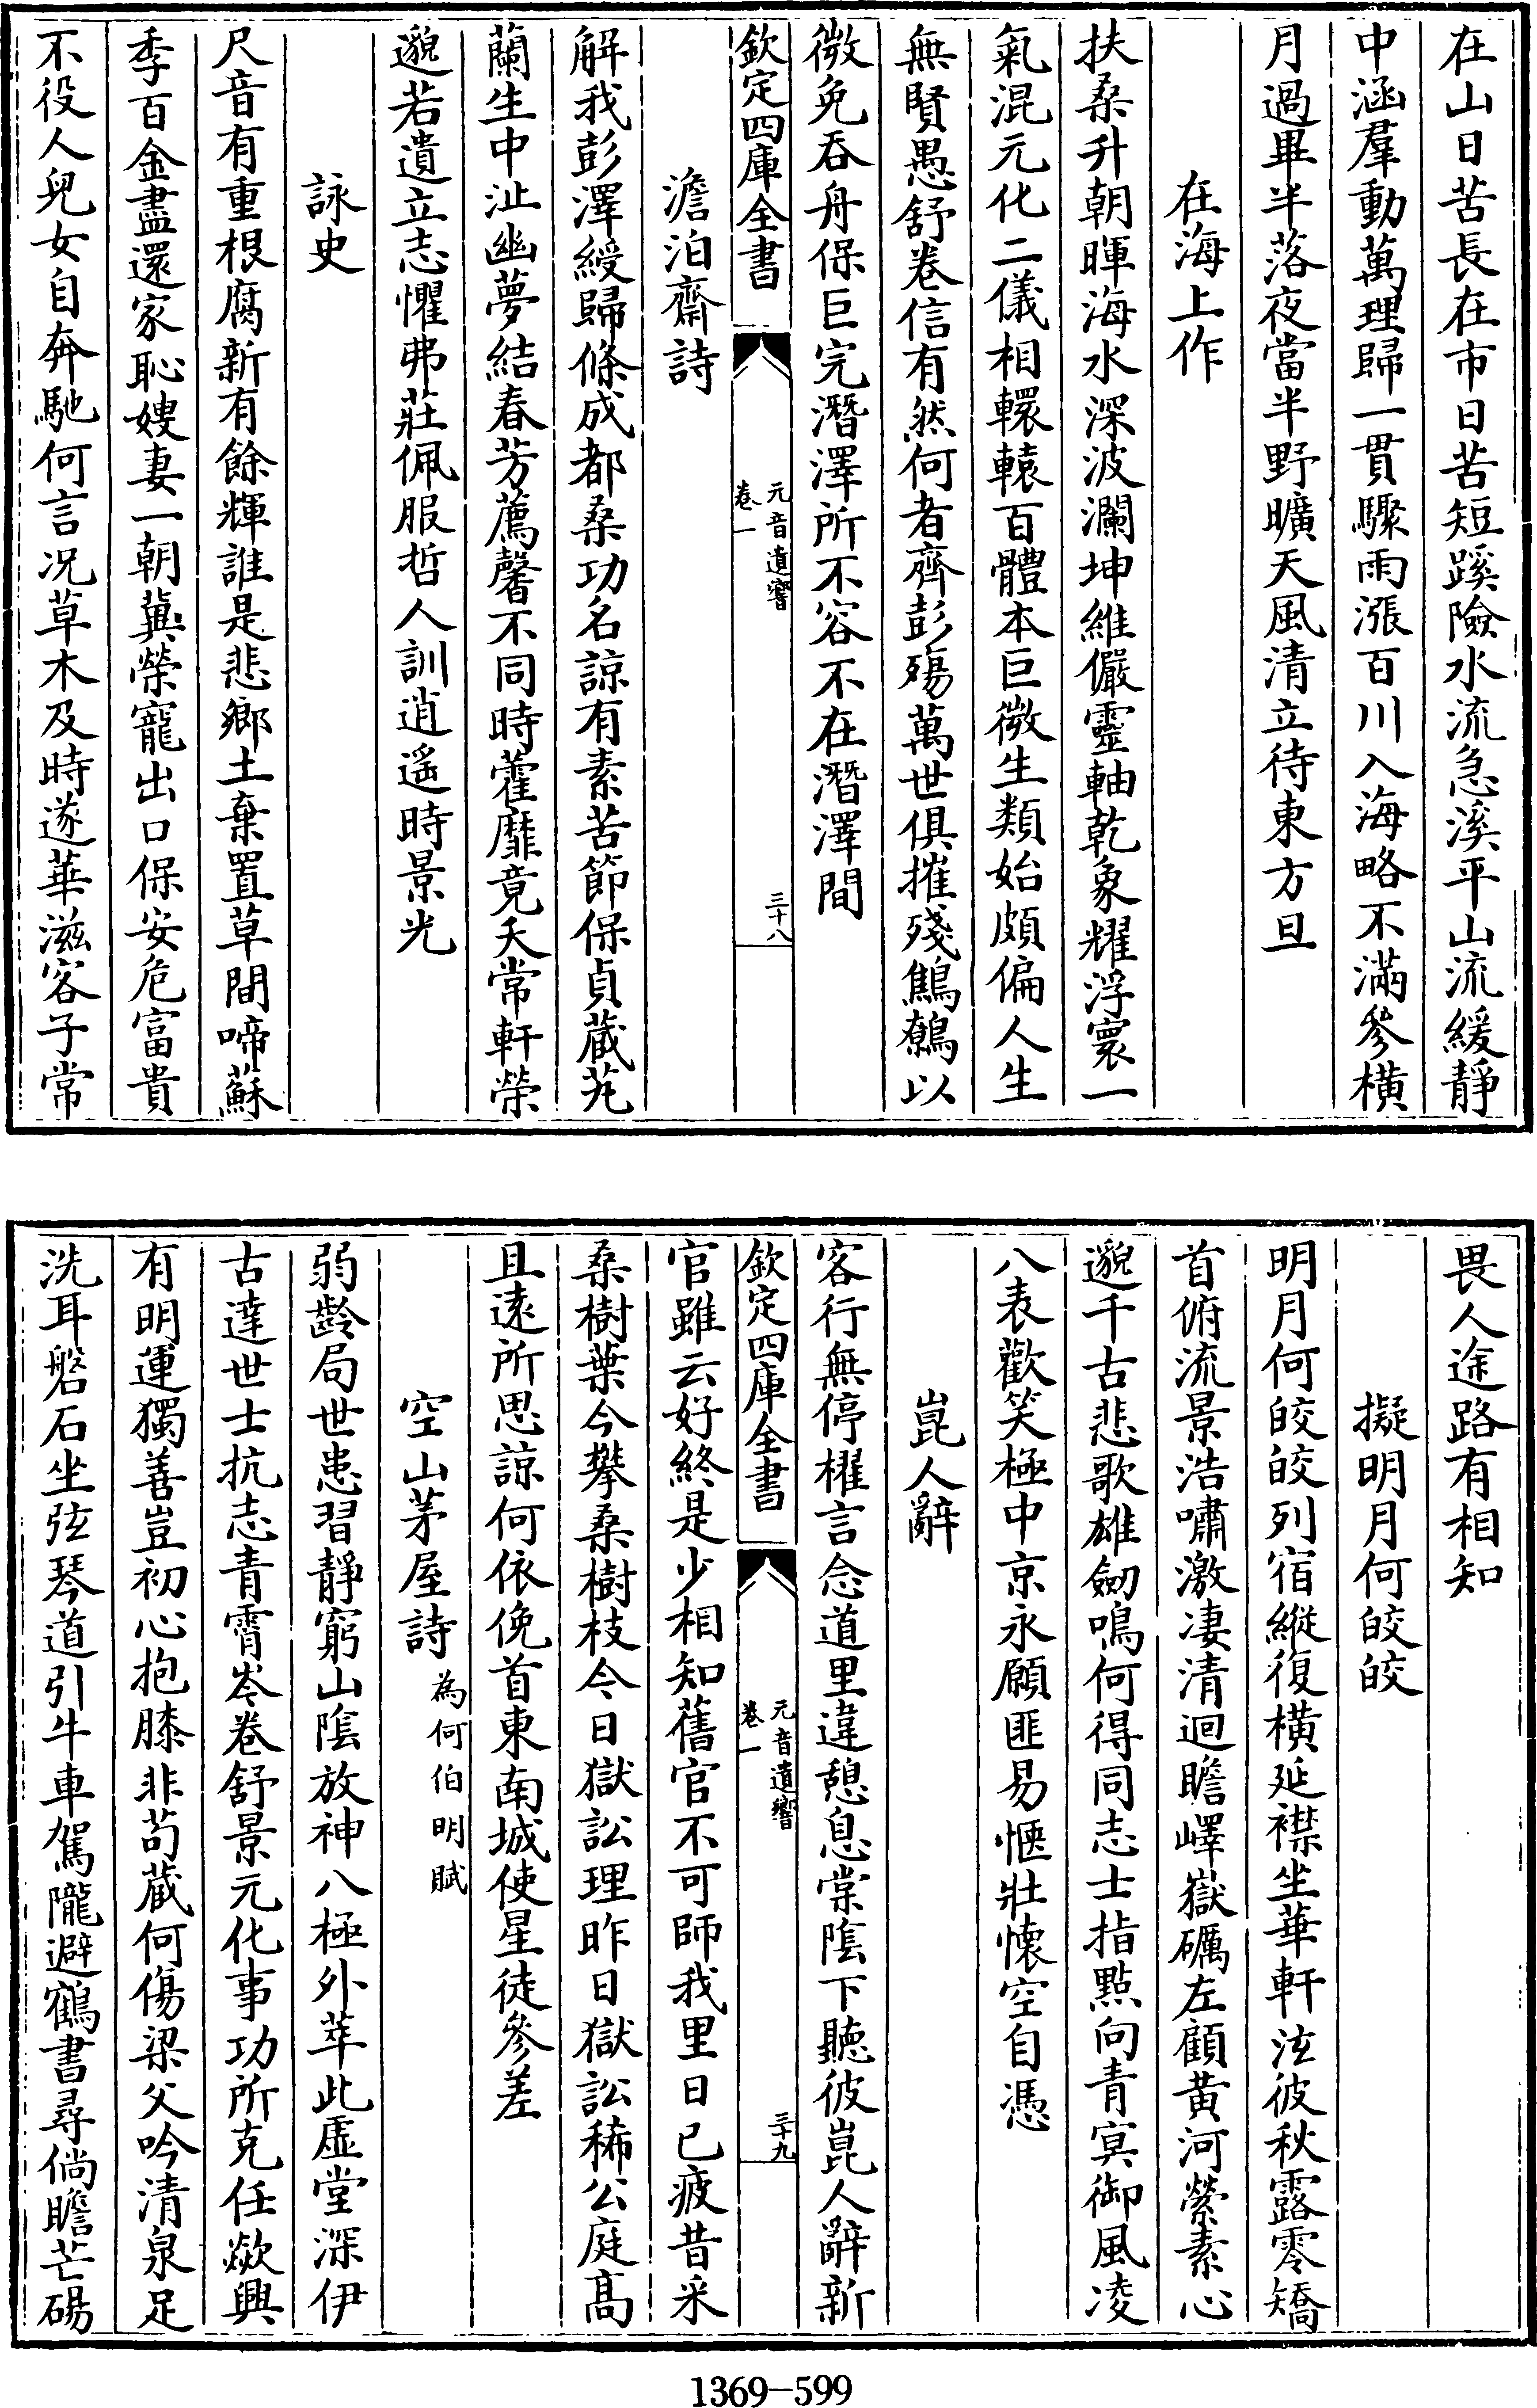 在山日苦長在市日苦短蹊險水流急溪平山流緩靜
中涵羣動萬理歸一貫驟雨漲百川入海略不滿參橫
月過畢半落夜當半野曠天風清立待東方旦
在海上作
扶桑升朝暉海水深波瀾坤維儼靈軸乾象耀浮寰一
氣混元化二儀相轘轅百體本巨微生類始頗偏人生
無賢愚舒卷信有然何者齊彭殤萬世俱摧殘鷦鷯以
微免吞舟保巨完潛澤所不容不在潛澤間
欽定四庫全書
元音遺響
卷一
三十八
澹泊齋詩
解我彭澤綬歸條成都桑功名諒有素苦節保貞蔵芄
蘭生中沚幽夢結春芳薦馨不同時藿靡竟夭常軒榮
邈若遺立志懼弗莊佩服哲人訓逍遙時景光
詠史
尺音有重根腐新有餘輝誰是悲鄉土棄置草間啼蘇
季百金盡還家恥嫂妻一朝冀榮寵出口保安危富貴
不役人兒女自奔馳何言况草木及時遂華滋客子常
畏人途路有相知
擬明月何皎皎
明月何皎皎列宿縱復橫延襟坐華軒泫彼秋露零矯
首俯流景浩嘯激淒清迴瞻嶧嶽礪左顧黄河縈素心
邈千古悲歌雄劒鳴何得同志士指點向青冥御風凌
八表歡笑極中京永願匪易愜壯懷空自慿
崑人辭
客行無停櫂言念道里違憩息棠隂下聽彼崑人辭新
欽定四庫全書
元音遺響
卷一
三十九
官雖云好終是少相知舊官不可師我里日已疲昔采
桑樹葉今攀桑樹枝今日獄訟理昨日獄訟稀公庭髙
且逺所思諒何依俛首東南城使星徒參差
空山茅屋詩 為何伯明賦
弱齡局世患習靜窮山隂放神八極外萃此虚堂深伊
古達世士抗志青霄岑卷舒景元化事功所克任歘興
有明運獨善豈初心抱膝非苟蔵何傷梁父吟清泉足
洗耳磐石坐弦琴道引牛車駕隴避鶴書尋倘瞻芒碭
1369-599